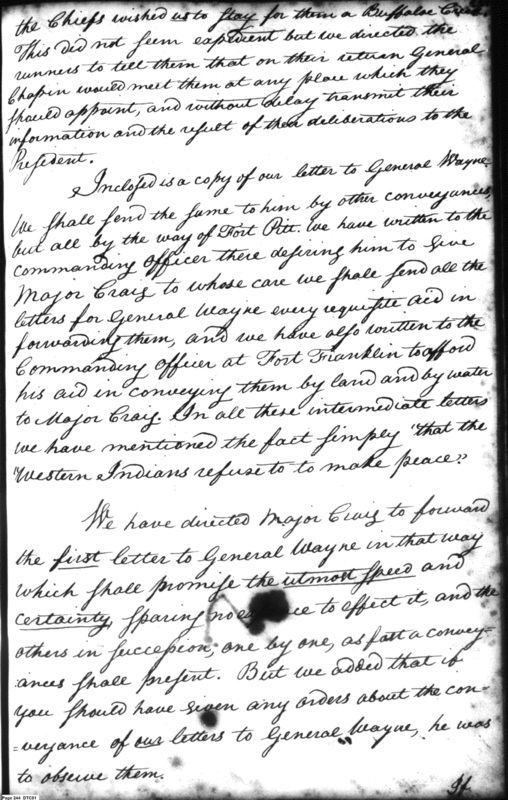 the Chiefs wished us to stay for them a Buffaloe Creek.
This did not seem expedient but we directed the
runners to tell them that on their return General
Chapin would meet them at any place which they
should appoint, and without delay transmit their
information and the result of their deliberations to the
President.
Inclosed is a copy of our letter to General Wayne
We shall send the same to him by other conveyances,
but all by the way of Fort Pitt. We have written to the
commanding officer there desiring him to give
Major Craig to whose care we shall send all the
letters for General Wayne every requisite aid in
forwarding them, and we have also written to the
Commanding officer at Fort Franklin to afford
his aid in conveying them by land and by water
to Major Craig. In all these intermediate letters
we have mentioned the fact simply "that the
"Western Indians refuse to to make peace."
We have directed Major Craig to forward
the first letter to General Wayne in that way
which shall promise the utmost speed and
certainty, sparing no to effect it, and the
others in succession, one by one, as fast a convey-
ances shall present. But we added that if
you should have given any orders about the con-
=veyance of our letters to General Wayne, he was
to observe them.
If
Page 244 DTC01